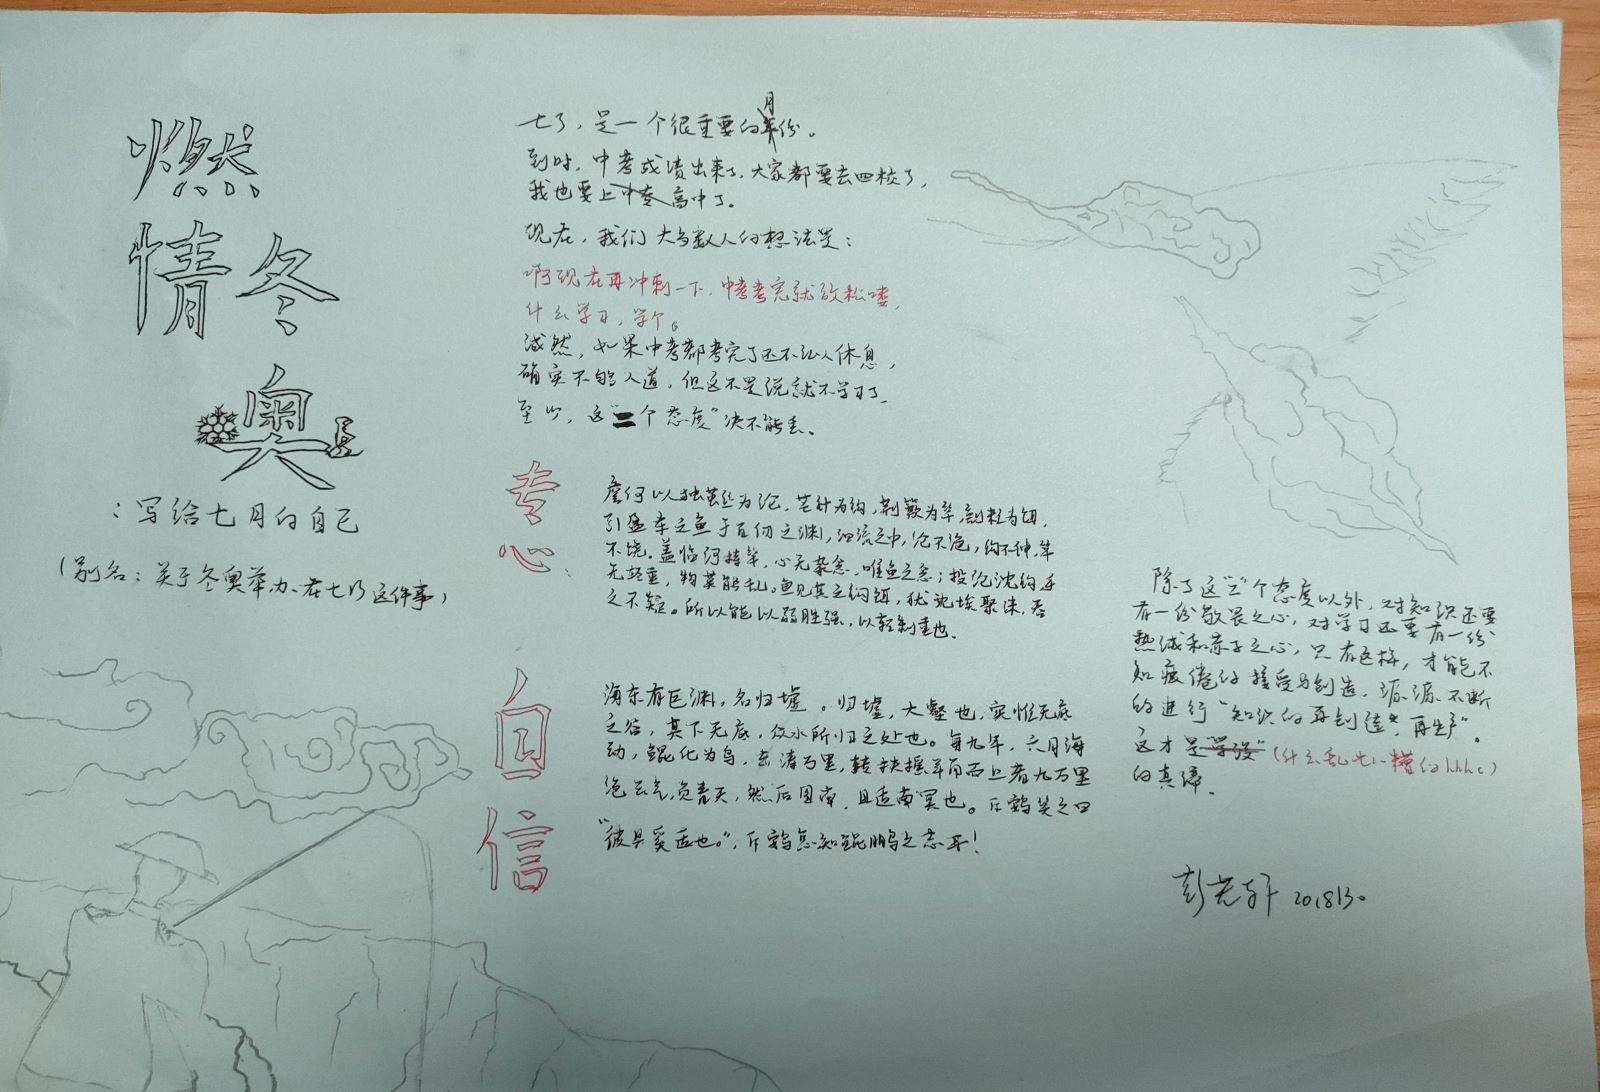 燃
情冬
奥
：写给七月的自己
（别名：关于冬奥举办、在七135这件事）
七了，是一个很重要的月份。
到时，中考成绩出来了，大家都要去四校了，
我也要上高中了。
现在，我们大多数人的想法是：
啊现在再冲刺一下，中考考完就放松喽，
什么学习，学个。
诚然，如果中考都考完了还不让人休息，
确实不够人道，但这不是说就不学习了，
至少，这“二个态度”决不能丢。
专
心：
詹何以独茧丝为沦，芒针为钩，荆篆为竿，剖粒为饵，
引盈车之鱼于百仞之渊，汩流之中，沦不绝，钩不伸，竿
不挠。盖临河持竿，心无杂念，唯鱼之念；投沦沈钩，手
无轻重，物莫能乱。鱼见其之钩饵，犹沈埃聚沫，吞
之不疑。所以能以弱胜强，以轻制重也。
自
信
海东有巨渊，名归墟。归墟，大壑也，实惟无底
之谷，其下无底，众水所归之处也。每九年，六月海
动，鲲化为鸟，击涛万里，转抉摇羊角而上者九万里
绝云气，负青天，然后图南，且适南冥也。斥鹌笑之曰
“彼且奚适也。”，斥鹌怎知鲲鹏之志乎！
除了这“二”个态度以外，对知识还要
有一份敬畏之心，对学习还要有一份
热诚和赤子之心，只有这样，才能不
知疲倦的接受与创造，源源不断
的进行“知识的再创造，再生产”。
这才是“学没”（什么乱七八糟的hhhc）
的真谛。